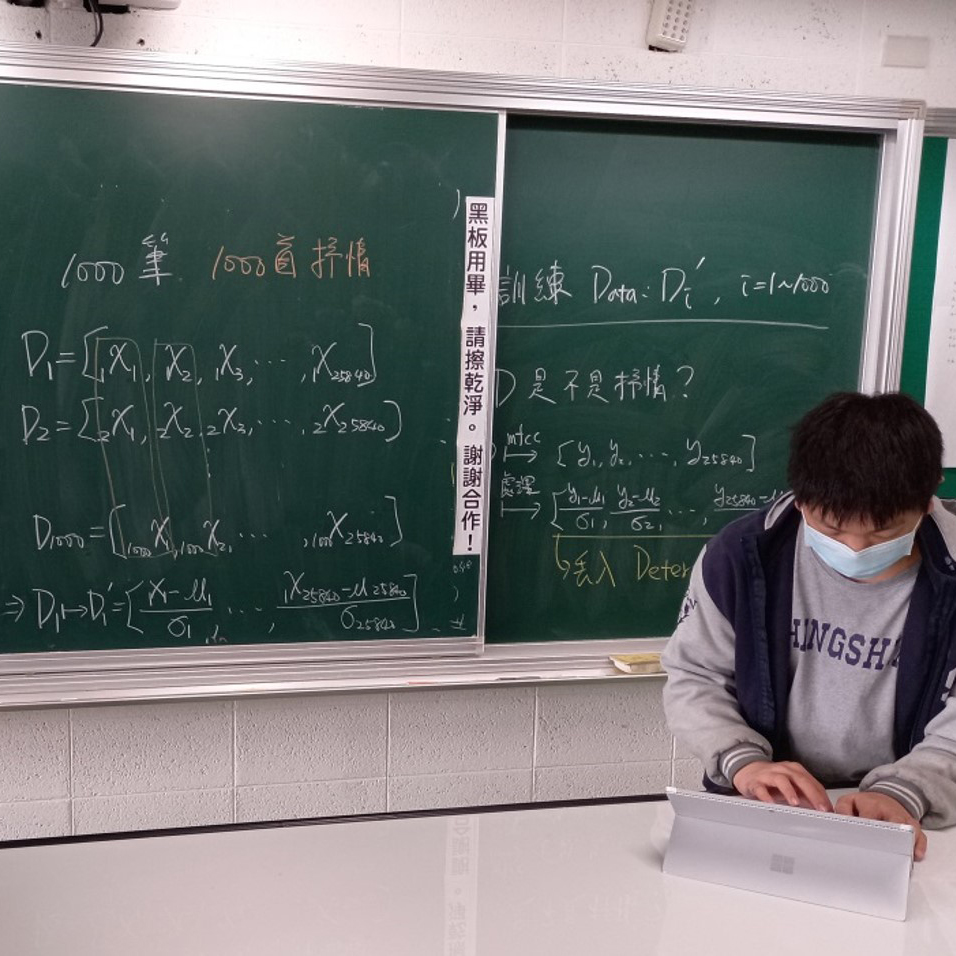 1000筆. 1000首抒情
D₁=[₁X₁, ₁X₂, ₁X₃, ⋯, ₁X₂₅₈₄₀]
D₂=[₂X₁, ₂X₂, ₂X₃, ⋯, ₂X₂₅₈₄₀]
D₁₀₀₀=[₁₀₀₀X₁, ₁₀₀₀X₂, ⋯, ₁₀₀X₂₅₈₄₀]
⇒ D₁↦D₁′=[(₁X₁-μ₁)/σ₁, ⋯, (₁X₂₅₈₄₀-μ₂₅₈₄₀)/σ₂₅₈₄₀]
黑板用畢，請擦乾淨。謝謝合作！
訓練 Data: Dᵢ′, i=1~1000
D 是不是抒情?
mfcc ↦ [y₁, y₂, ⋯, y₂₅₈₄₀]
處理 ↦ [(y₁-μ₁)/σ₁, (y₂-μ₂)/σ₂, ⋯, y₂₅₈₄₀-μ
↳丟入 Deter